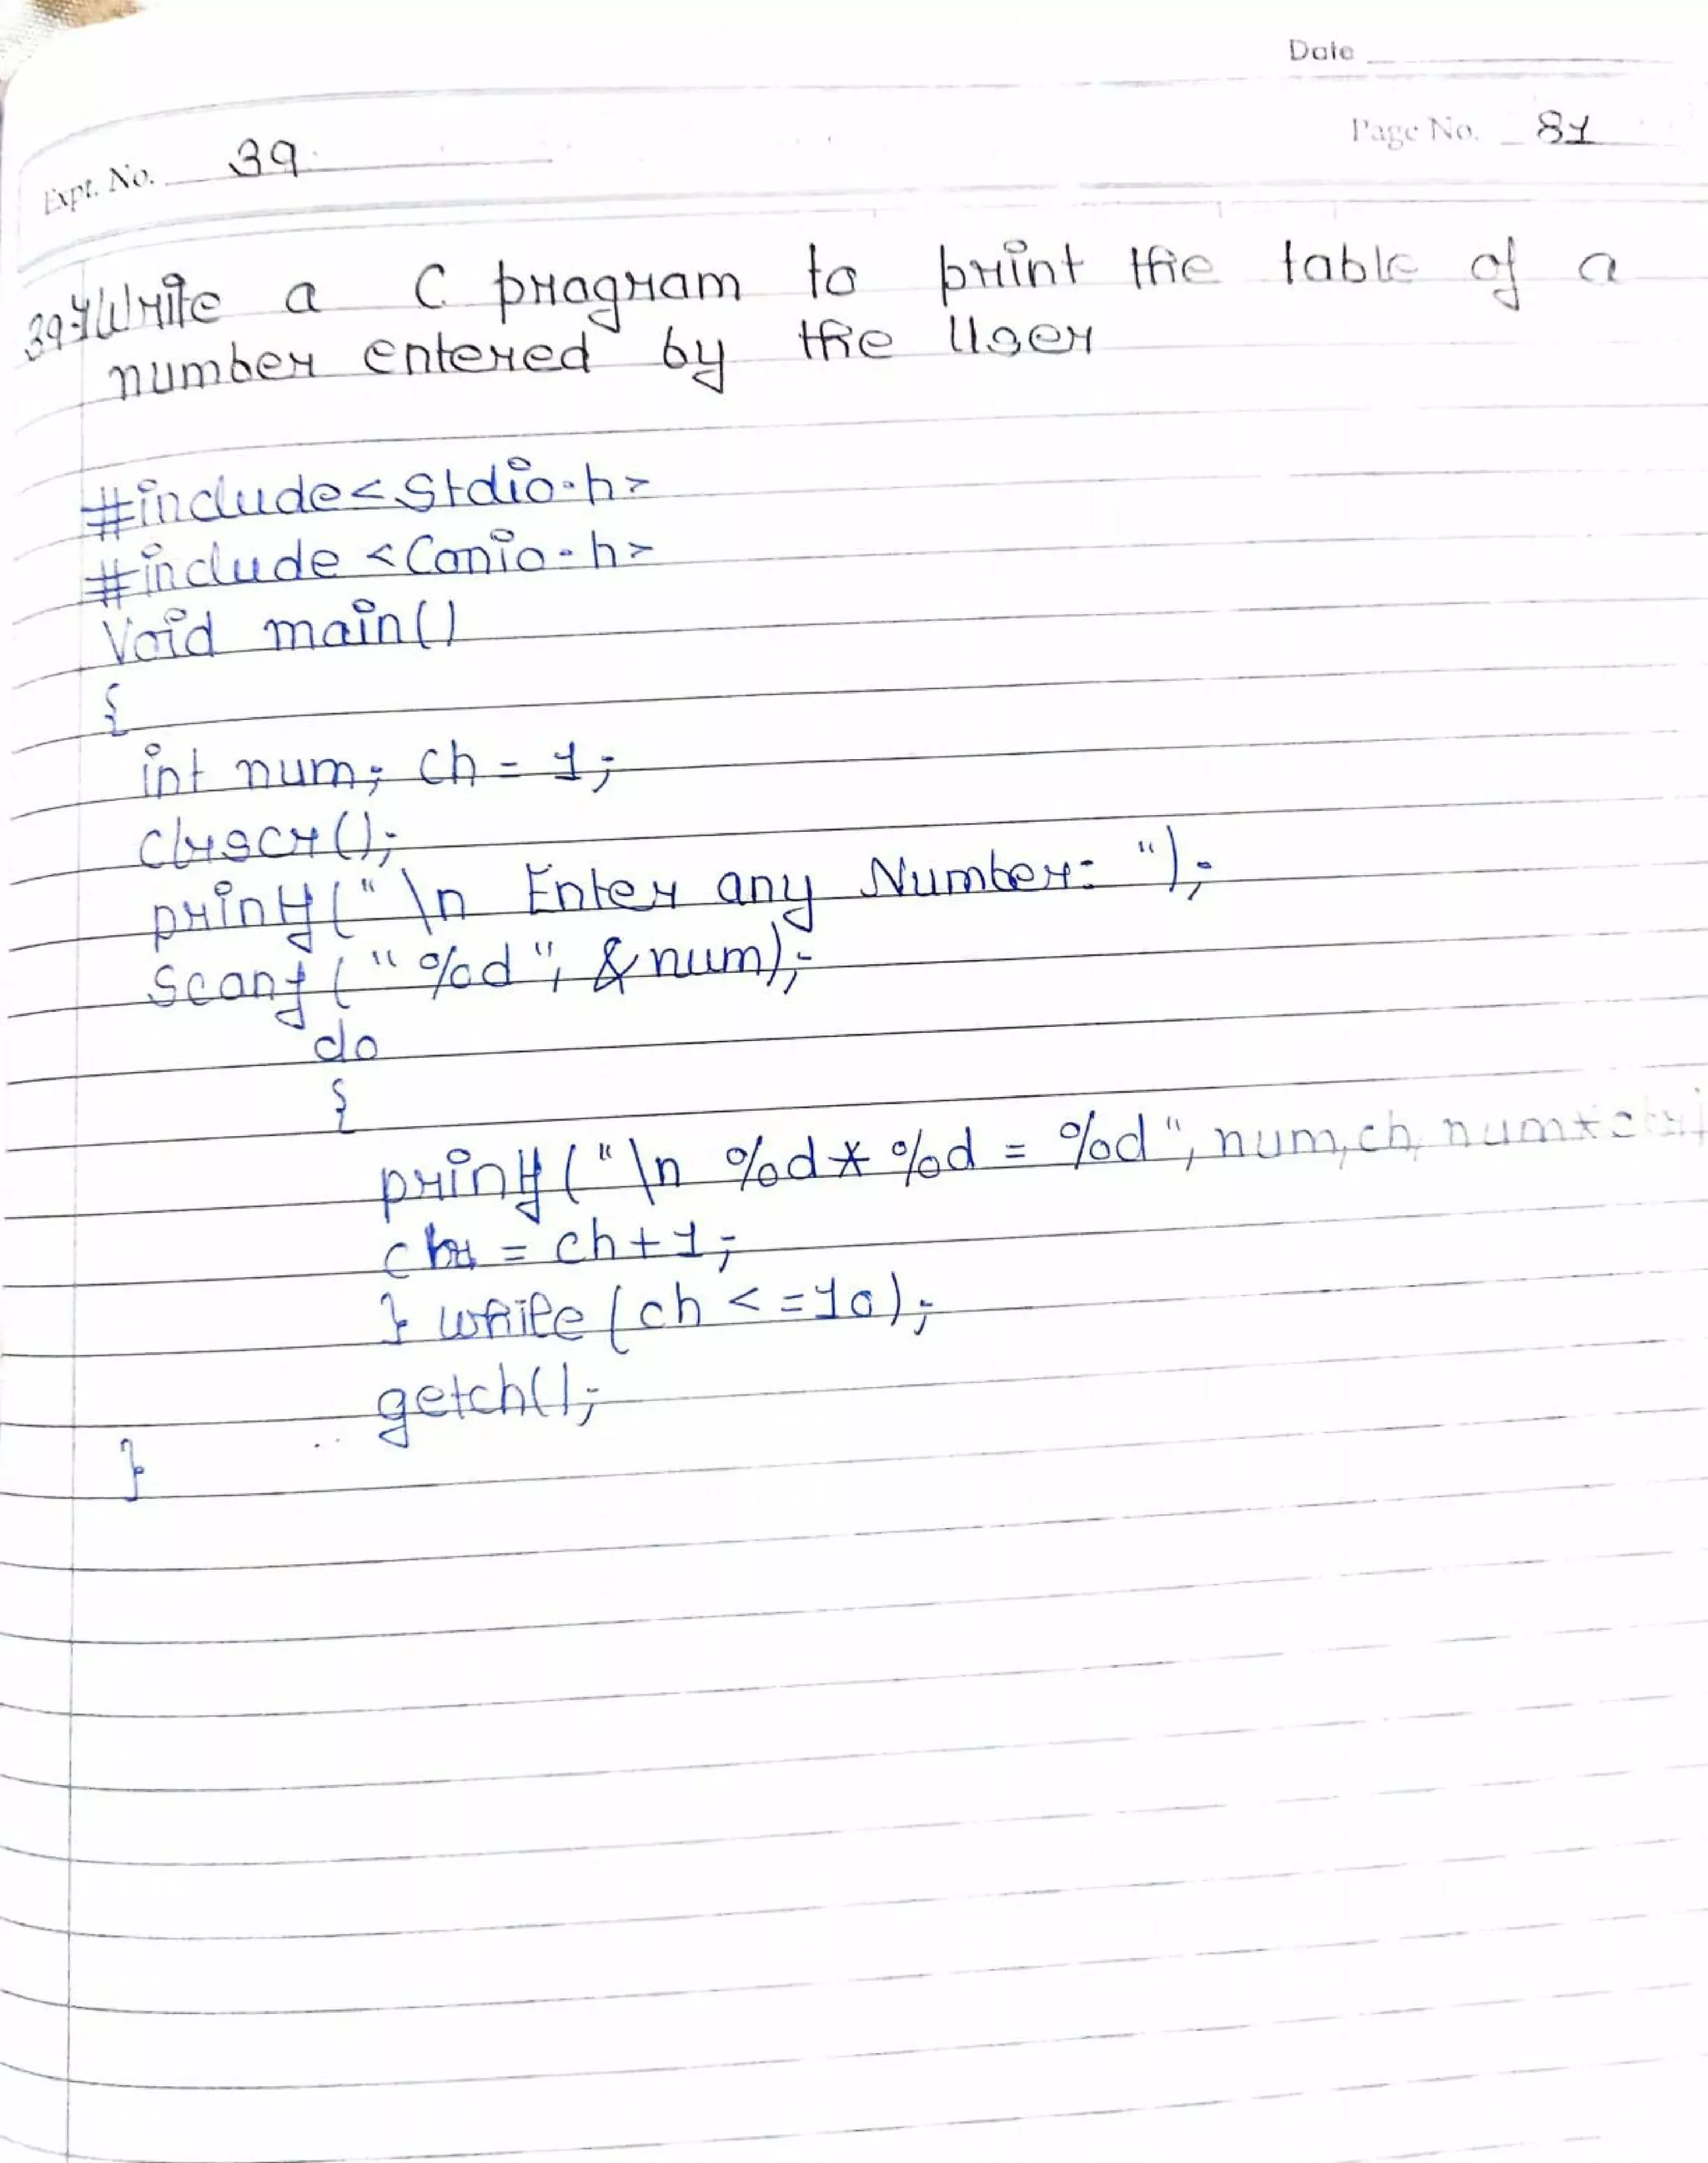 Date
Page No. 81
Expt. No. 39
39 Write a C program to print the table of a
number entered by the User
#include<Stdio.h>
#include <Conio.h>
Void main()
{
int num; ch = 1;
clrscr();
printf("\n Enter any Number: ");
Scanf("%d", &num);
do
{
printf("\n %d * %d = %d", num, ch,
= ch+1;
} while (ch <=10);
getch();
}